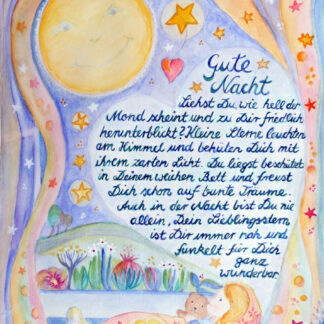 Gute
Nacht
Siehst Du, wie hell der
Mond scheint und zu Dir friedlich
herunterblickt? Kleine Sterne leuchten
am Himmel und behüten Dich mit
ihrem zarten Licht. Du liegst beschützt
in Deinem weichen Bett und freust
Dich schon auf bunte Träume.
Auch in der Nacht bist Du nie
allein, Dein Lieblingsstern
ist Dir immer nah und
funkelt für Dich
ganz
wunderbar.